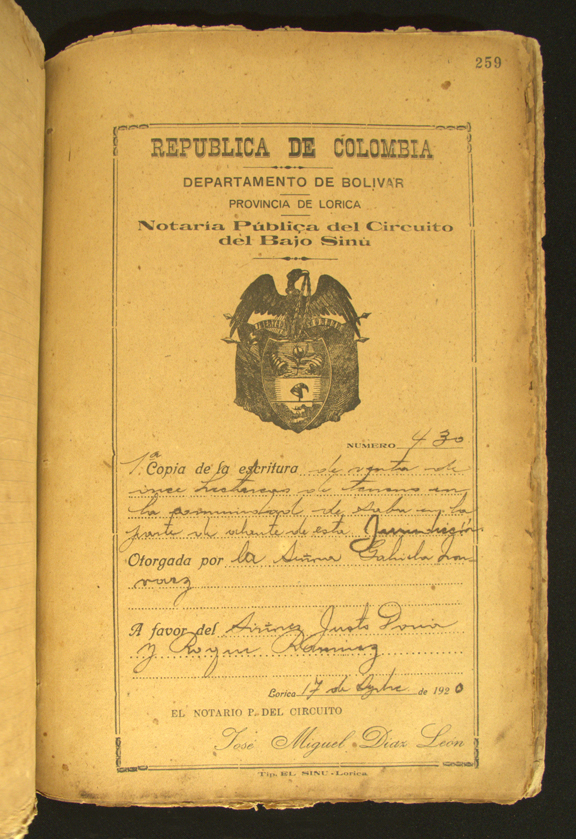 259
REPUBLICA DE COLOMBIA
DEPARTAMENTO DE BOLIVAR
PROVINCIA DE LORICA
Notaría Pública del Circuito
del Bajo Sinú
NUMERO 430
1ª Copia de la escritura de venta de
hectáreas de terreno en
la comunidad de en la
parte de de esta Jurisdicción
Otorgada por la Señora
A favor del Señores Justo
y Ramirez
Lorica 17 de de 1920
EL NOTARIO P. DEL CIRCUITO
José Miguel Diaz León
Tip. EL SINU - Lorica